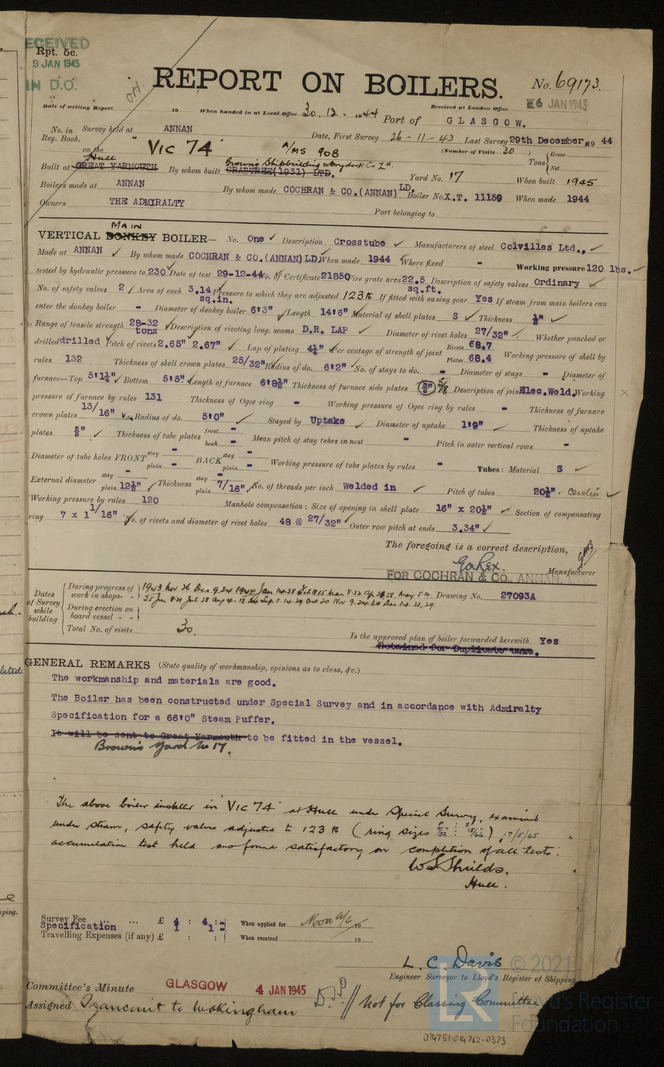 RECEIVED
9 JAN 1945
IN D.O.
Rpt. 5e.
REPORT ON BOILERS.
No. 69173.
Date of writing Report 19 When handed in at Local Office 30.12.1944 Received at London Office 26 JAN 1945
Port of GLASGOW.
No. in Reg. Book. Survey held at ANNAN Date, First Survey 26-11-43 Last Survey 29th December, 1944
on the "VIC 74" A/MS 908 (Number of Visits 30) Tons Gross Net
Built at Hull GREAT YARMOUTH By whom built CRABTREE(1931) LTD. Yard No. 17 When built 1945
Boilers made at ANNAN By whom made COCHRAN & CO.(ANNAN) LD. Boiler No. X.T. 11159 When made 1944
Owners THE ADMIRALTY Port belonging to
VERTICAL MAIN DONKEY BOILER— No. One Description Crosstube Manufacturers of steel Colvilles Ltd.,
Made at ANNAN By whom made COCHRAN & CO.(ANNAN)LD. When made 1944 Where fixed - Working pressure 120 lbs.
tested by hydraulic pressure to 230 Date of test 29-12-44 No. of Certificate 21850 Fire grate area 22.5 sq.ft. Description of safety valves Ordinary
No. of safety valves 2 Area of each 3.14 sq.in. Pressure to which they are adjusted 123 lb If fitted with easing gear Yes If steam from main boilers can
enter the donkey boiler - Diameter of donkey boiler 6'3" Length 14'6" Material of shell plates S Thickness ½"
Range of tensile strength 28-32 tons Description of riveting long. seams D.R. LAP Diameter of rivet holes 27/32" Whether punched or
drilled drilled Pitch of rivets 2.65" 2.67" Lap of plating 4¼" Per centage of strength of joint Rivets 68.7 Plates 68.4 Working pressure of shell by
rules 132 Thickness of shell crown plates 25/32" Radius of do. 6'2" No. of stays to do. - Diameter of stays - Diameter of
furnace—Top 5'1¼" Bottom 5'5" Length of furnace 6'9½" Thickness of furnace side plates 5/8 Description of joint Elec.Weld. Working
pressure of furnace by rules 131 Thickness of Ogee ring - Working pressure of Ogee ring by rules - Thickness of furnace
crown plates 13/16" Radius of do. 5'0" Stayed by Uptake Diameter of uptake 1'9" Thickness of uptake
plates 5/8" Thickness of tube plates front - back - Mean pitch of stay tubes in nest - Pitch in outer vertical rows -
Diameter of tube holes FRONT stay - plain - BACK stay - plain - Working pressure of tube plates by rules - Tubes: Material S
External diameter stay - plain 12½" Thickness 7/16" No. of threads per inch Welded in Pitch of tubes 20½"
Working pressure by rules 120 Manhole compensation: Size of opening in shell plate 16" x 20½" Section of compensating
ring 7 x 1 1/16" No. of rivets and diameter of rivet holes 48 @ 27/32" Outer row pitch at ends 3.34"
The foregoing is a correct description,
FOR COCHRAN & CO. ANNAN Manufacturer
Dates of Survey while building
During progress of work in shops - -
During erection on board vessel - -
Total No. of visits 30.
Drawing No. 27093A
Is the approved plan of boiler forwarded herewith Yes
Retained for Duplicate case.
GENERAL REMARKS (State quality of workmanship, opinions as to class, &c.)
The workmanship and materials are good.
The Boiler has been constructed under Special Survey and in accordance with Admiralty
Specification for a 66'0" Steam Puffer.
It will be sent to Great Yarmouth to be fitted in the vessel.
Brown's Yard No 17.
The above boiler installed in "VIC 74" at Hull under Special Survey, examined
under steam, safety valves adjusted to 123 lb (ring sizes) 17/5/45
accumulation test held and found satisfactory on completion of all tests.
W.S. Shields.
Hull.
Survey Fee ... ... £ 4 : 4 : When applied for
Specification 1 1
Travelling Expenses (if any) £ : : When received 19
L. C. Davis
Engineer Surveyor to Lloyd's Register of Shipping.
Committee's Minute GLASGOW 4 JAN 1945
Assigned Transmit to Wokingham Not for Classing Committee
© 2021
LR
Lloyd's Register
Foundation
014751-014762-0373